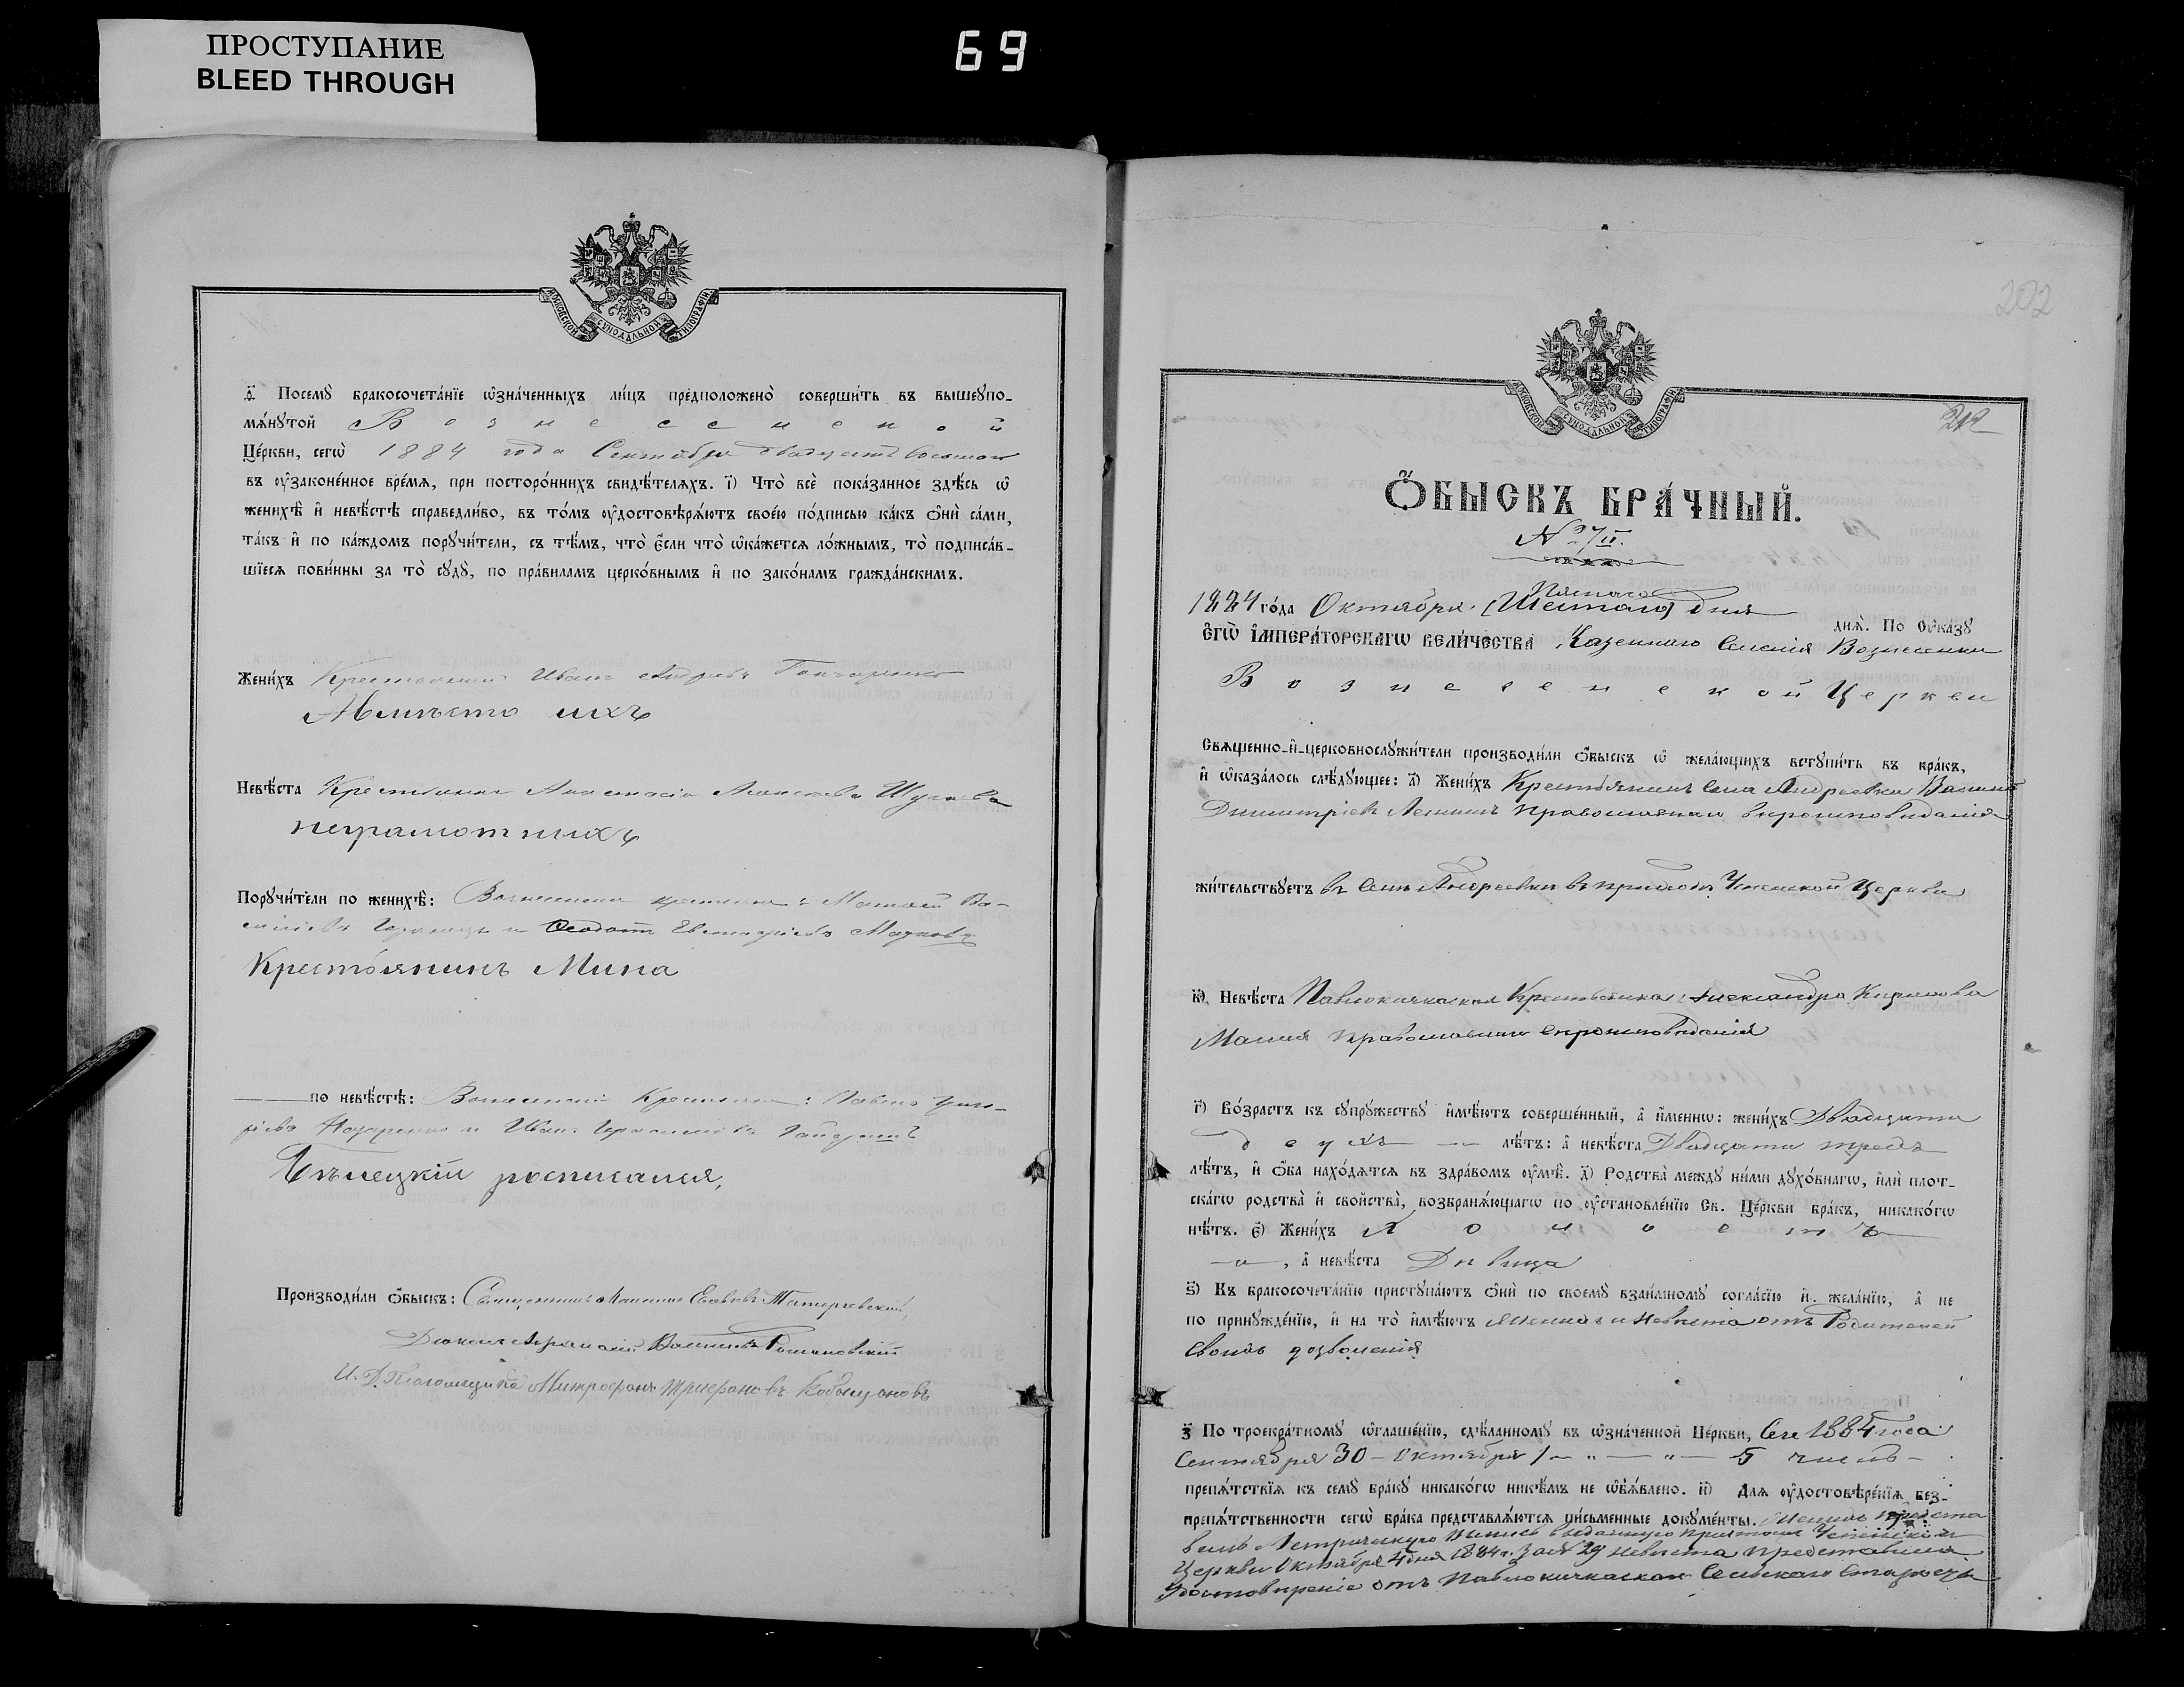 ПРОСТУПАНИЕ
BLEED THROUGH
69
МОСКОВСКОЙ СѴНОДАЛЬНОЙ ТИПОГРАФІИ
ѳ҃ Посемꙋ̀ бракосочета́нїе ѡ҆зна́ченныхъ ли́цъ предположено̀ соверши́ть въ вышеꙋпо-
мѧ́нꙋтой Вознесенской
Це́ркви, сегѡ̀ 1884 года Сентября двадцать восьмого
въ ᲂу҆законе́нное вре́мѧ, при посторо́ннихъ свидѣ́телѧхъ. і҃) Что̀ всѐ пока́занное здѣ́сь ѡ҆
женихѣ̀ и҆ невѣ́стѣ справедли́во, въ то́мъ ᲂу҆достовѣрѧ́ютъ свое́ю по́дписью ка́къ ѻ҆нѝ са́ми,
та́къ и҆ по ка́ждомъ порꙋчи́тели, съ тѣ́мъ, что̀ є҆́сли что̀ ѡ҆ка́жетсѧ ло́жнымъ, то̀ подписа́в-
шїесѧ пови́нны за то̀ сꙋдꙋ̀, по пра́виламъ церко́внымъ и҆ по зако́намъ гражда́нскимъ.
Жени́хъ Крестьянинъ Иванъ Андреевъ Гончаренко
Авместо ихъ
Невѣ́ста Крестьянка Анастасія Шугаева
неграмотныхъ
Порꙋчи́тели по женихѣ̀: Вознесенки крестьяне: Матвей Ва-
сильевъ и Ѳеодотъ Евстафіевъ Марковъ
Крестьянинъ Мина
по невѣ́стѣ: Вознесенки Крестьяне: Павелъ Григо-
ріевъ Назаренко и Иванъ Герасимовъ
Бѣлецкій росписался,
Производи́ли ѻ҆́быскъ: Священникъ
Діаконъ Василій Романовскій
И. Д. Псаломщика Митрофанъ Трифановъ
202
212
МОСКОВСКОЙ СѴНОДАЛЬНОЙ ТИПОГРАФІИ
Ѻ҆́БЫСКЪ БРА́ЧНЫЙ.
№ 37/II.
Пятаго
1884 го́да Октября (Шестого) дня днѧ̀. По ᲂу҆ка́зꙋ
Є҆гѡ̀ І҆мпера́торскагѡ вели́чества Казеннаго Селенія Вознесенки
Вознесенской Церкви
Сващенно-и҆-церковнослꙋжи́тели производи́ли ѻ҆́быскъ ѡ҆ жела́ющихъ встꙋпи́ть въ бра́къ,
и҆ ѡ҆каза́лось слѣ́дꙋющее: а҃) Жени́хъ Крестьянинъ села Андреевки Василій
Димитріевъ Православнаго вѣроисповѣданія
жи́тельствꙋетъ въ селѣ Андреевки въ приходѣ Успенской Церкви
в҃) Невѣ́ста Павлокичкаская Крестьянка: Александра Кирилова
православнаго вероисповѣданія
г҃) Во́зрастъ къ сꙋпрꙋ́жествꙋ и҆мѣ́ютъ соверше́нный, а҆ и҆́меннѡ: жени́хъ Двадцати
двухъ лѣ́тъ: а҆ невѣ́ста Двадцати трехъ
лѣ́тъ, и҆ ѻ҆́ба нахо́дѧтсѧ въ здра́вомъ ᲂу҆мѣ̀. д҃) Родства̀ междꙋ ни́ми дꙋхо́внагѡ, и҆лѝ плот-
ска́гѡ родства̀ и҆ свойства̀, возбранѧ́ющагѡ по ᲂу҆становле́нїю Св. Це́ркви бра́къ, никако́гѡ
нѣ́тъ. є҃) Жени́хъ Холостъ
, а҆ невѣ́ста Дѣвица
ѕ҃) Къ бракосочета́нїю пристꙋпа́ютъ ѻ҆нѝ по своемꙋ̀ взаи́мномꙋ согла́сїю и҆ жела́нїю, а҆ не
по принꙋжде́нїю, и҆ на то̀ и҆мѣ́ютъ Женихъ и Невѣста отъ Родителей
своихъ дозволенія
з҃ По троекра́тномꙋ ѡ҆глаше́нїю, сдѣ́ланномꙋ въ ѡ҆зна́ченной Це́ркви, Сего 1884 года
Сентября 30 – Октября 1 – „ – „ – 5 числъ –
препѧ́тствїѧ къ семꙋ̀ бра́кꙋ никако́гѡ никѣ́мъ не ѡ҆б̾ѧ́влено. и҃) Длѧ ᲂу҆достовѣре́нїѧ без-
препѧ́тственности сегѡ̀ бра́ка представлѧ́ютсѧ пи́сьменные докꙋме́нты. Женихъ предста
вилъ Метрическую выпись выданную причтомъ Успенской
Церкви Октября 4 дня 1884 г. за № 29 невѣста представила
Удостовѣреніе отъ Павлокичкаскаго Сельскаго Старосты